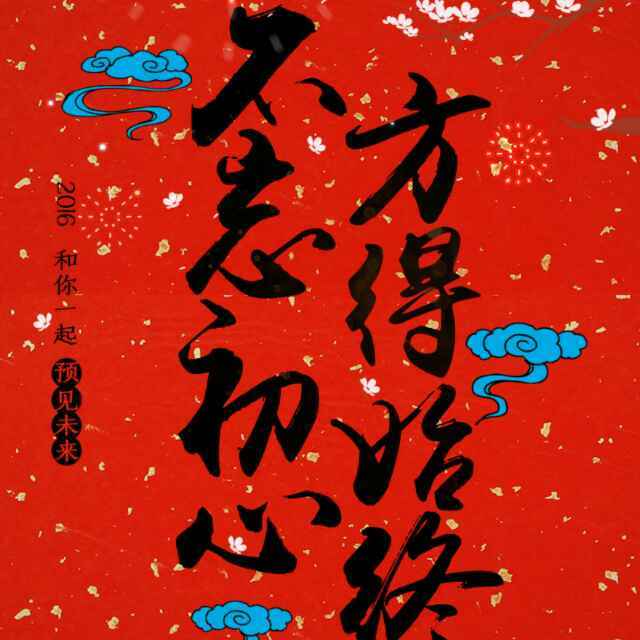 不忘初心
方得始终
2016 和你一起 预见未来